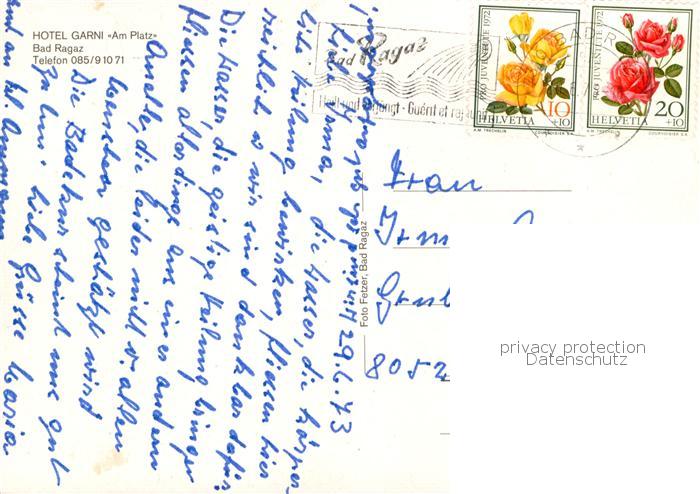 HOTEL GARNI «Am Platz»
Bad Ragaz
Telefon 085/9 10 71
Bad Ragaz
Heilt und verjüngt - Guérit et
PRO JUVENTUTE 1972
10
+10
HELVETIA
A.M. TRECHSLIN COURVOISIER S.A.
PRO JUVENTUTE 1972
20
+10
HELVETIA
A.M. TRECHSLIN COURVOISIER S.A.
29.6.73
Liebe Irma, die Wasser, die körper-
liche Heilung bewirken, fliessen hier
reichlich & wir sind dankbar dafür
Die Wasser die geistige Heilung bringen
fliessen allerdings aus einer andern
Quelle, die leider nicht v. allen
geschätzt wird
Die Badekur scheint uns gut
zu tun. Liebe Grüsse Maria
Foto Fetzer, Bad Ragaz
Frau
Irm
8052
privacy protection
Datenschutz